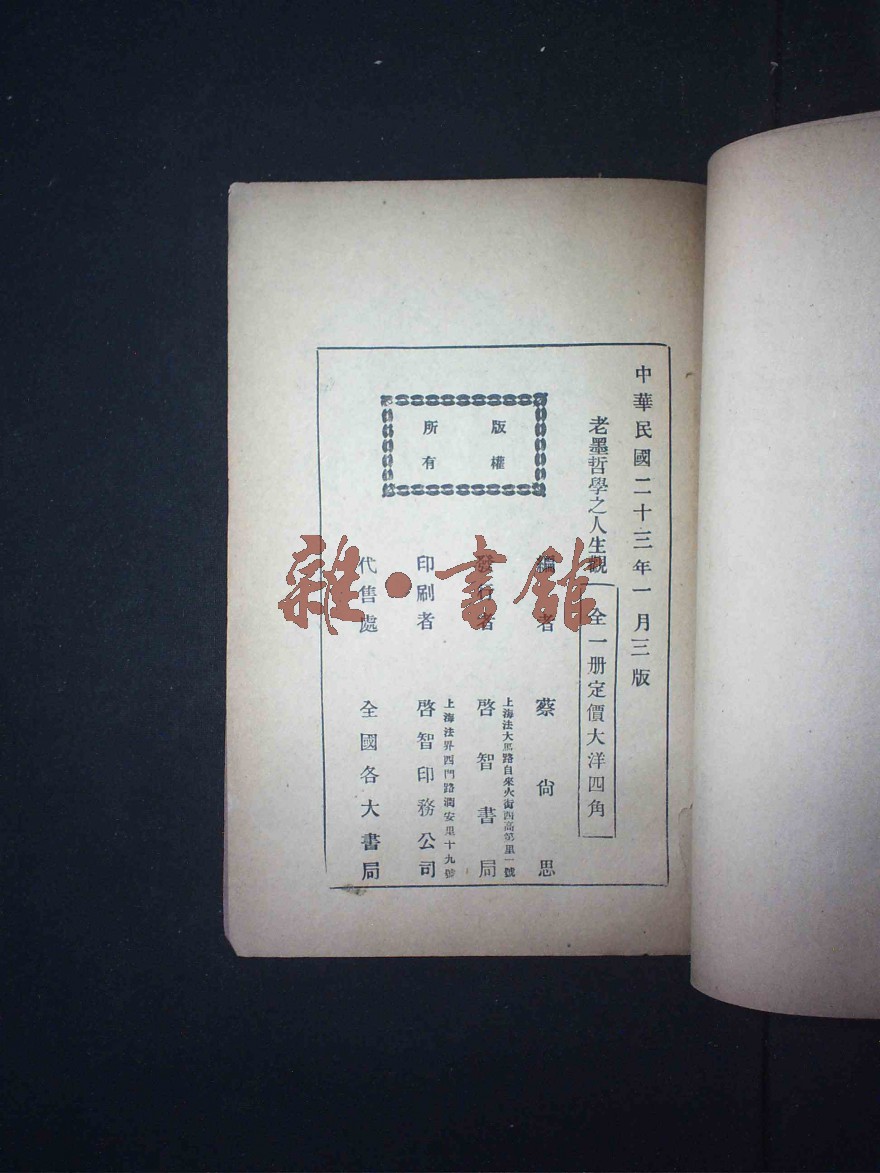 中華民國二十三年一月三版
老墨哲學之人生觀
全一册定價大洋四角
版權
所有
編者 蔡尙思
上海法大馬路自來火街西高第里一號
發行者 啓智書局
上海法界西門路潤安里十九號
印刷者 啓智印務公司
代售處 全國各大書局
雜·書館